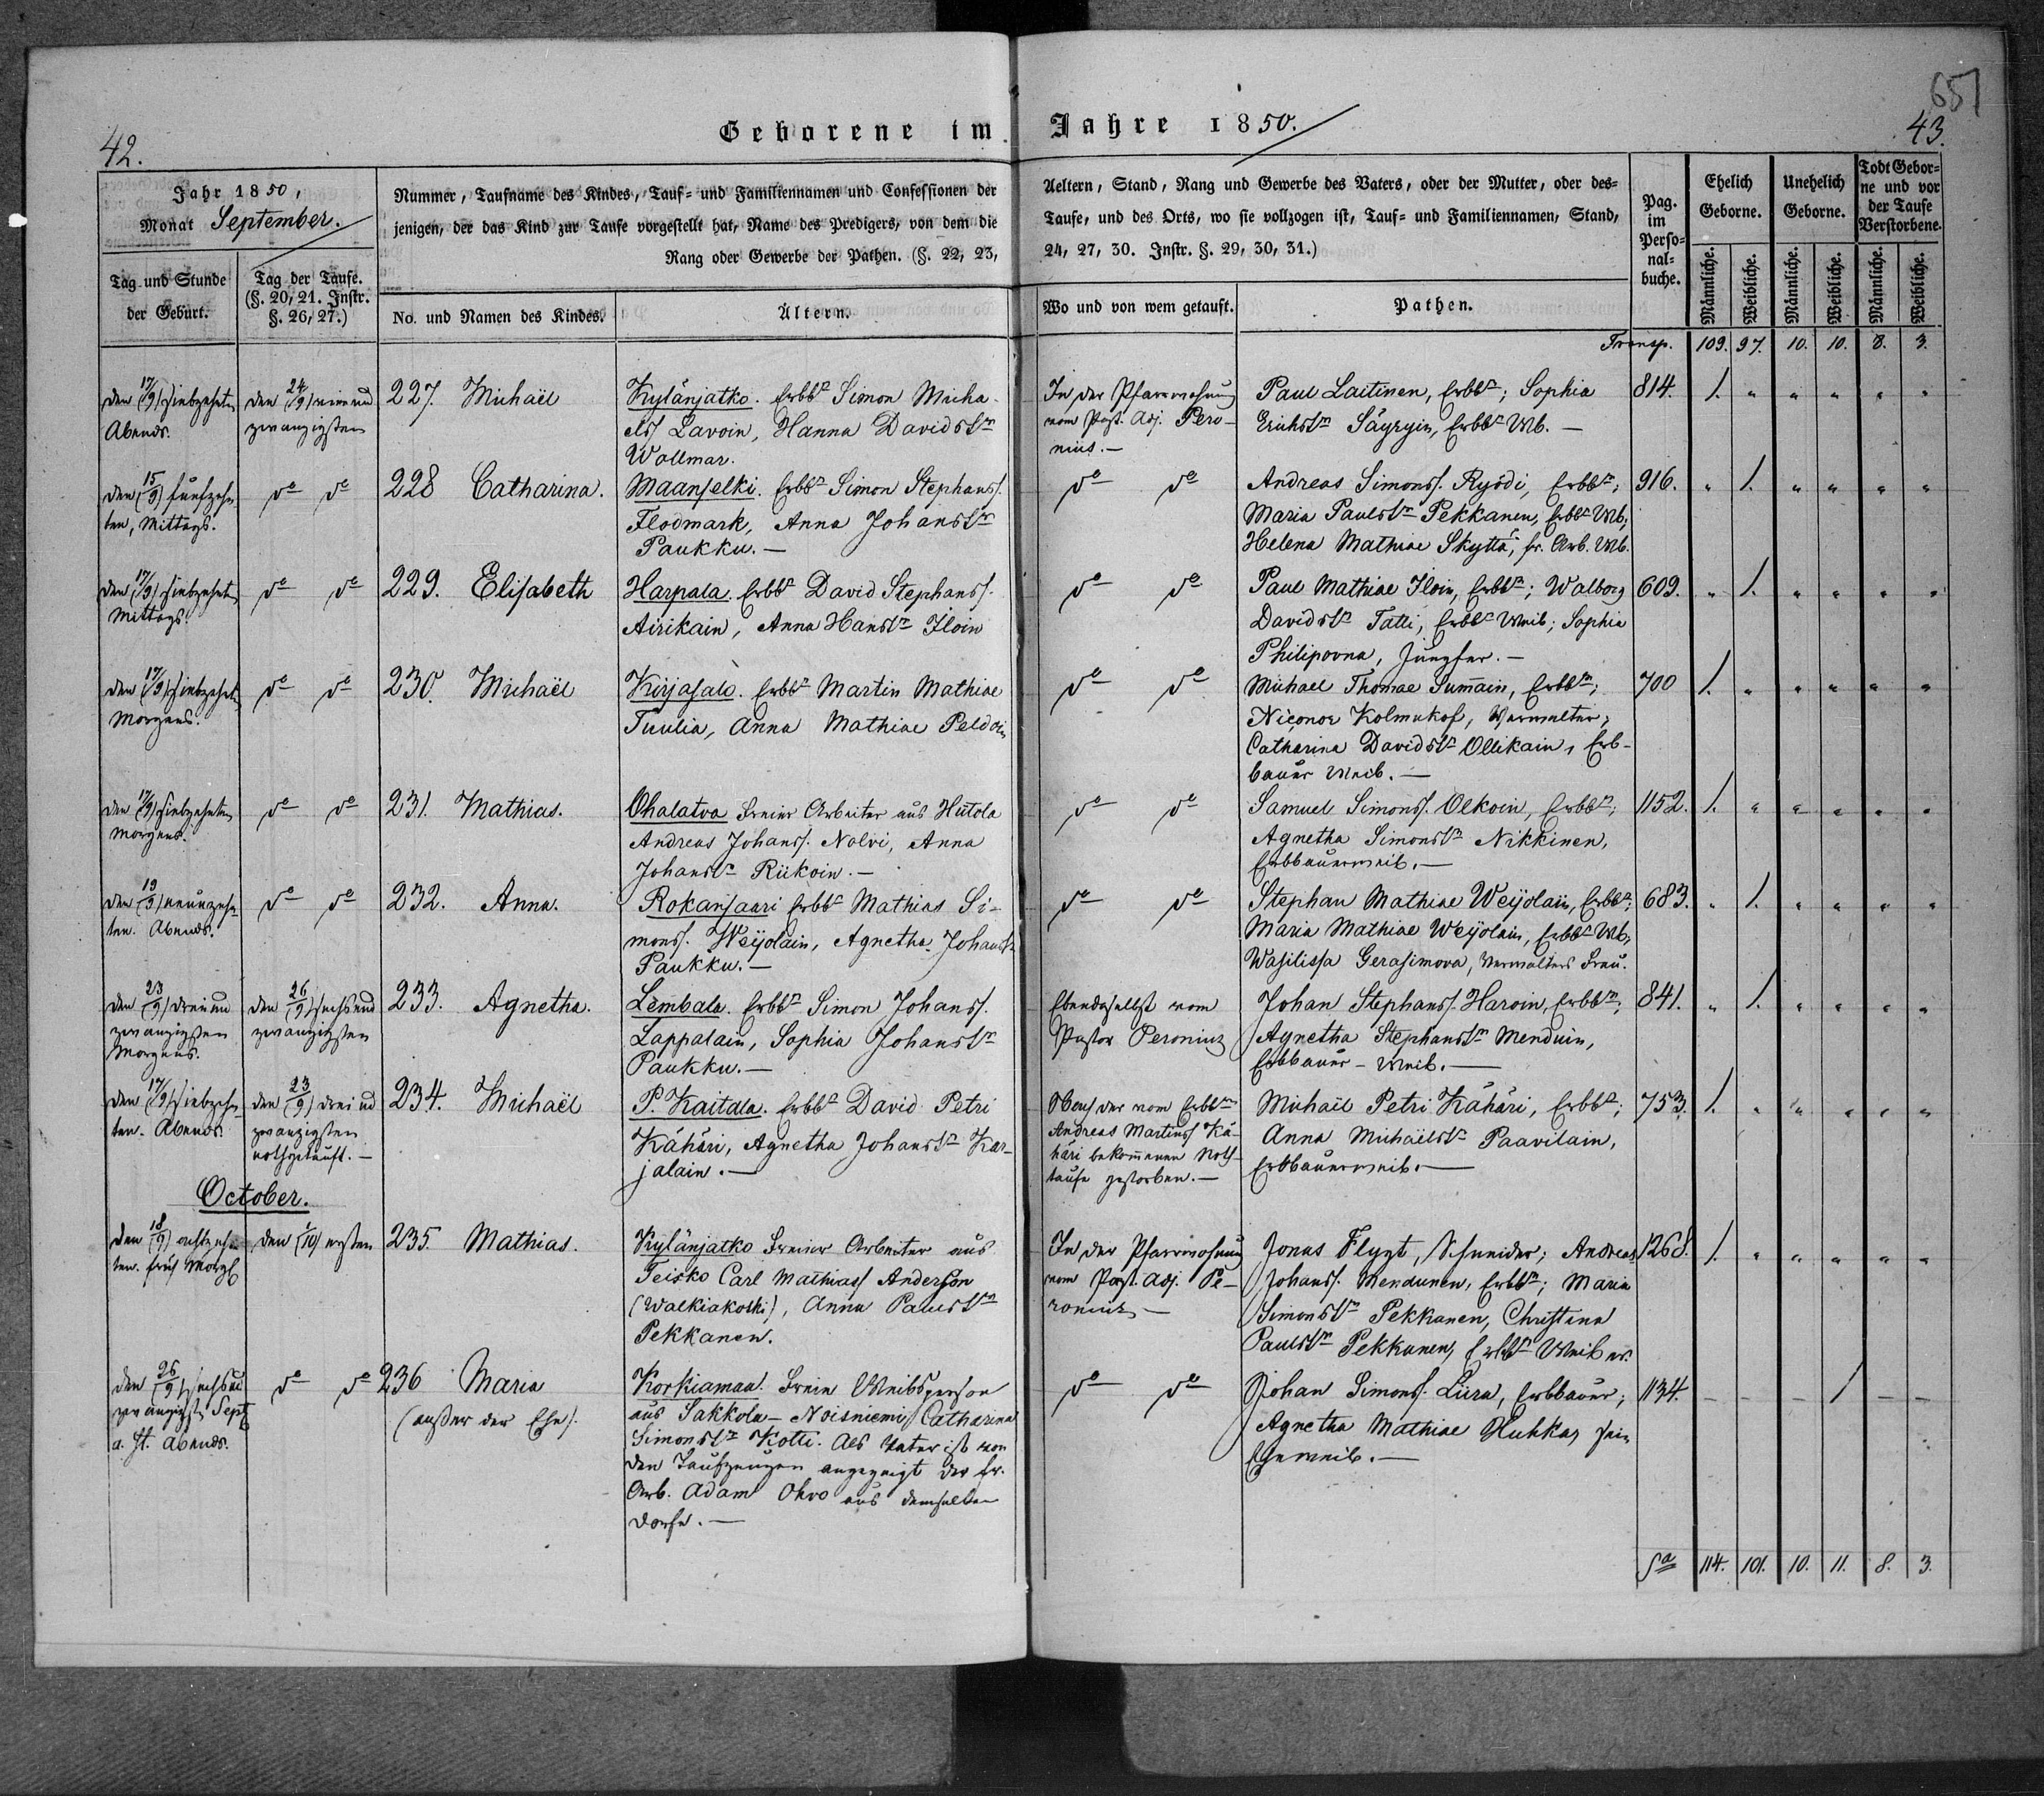 657
42.
Geborene im Jahre 1850.
43.
Jahr 1850,
Monat September.
Tag und Stunde
der Geburt.
Tag der Taufe.
(§. 20, 21. Instr.
§. 26, 27.)
Nummer, Taufname des Kindes, Tauf- und Familiennamen und Confessionen der
jenigen, der das Kind zur Taufe vorgestellt hat, Name des Predigers, von dem die
Rang oder Gewerbe der Pathen. (§. 22, 23,
No. und Namen des Kindes.
Ältern.
Aeltern, Stand, Rang und Gewerbe des Vaters, oder der Mutter, oder des-
Taufe, und des Orts, wo sie vollzogen ist, Tauf- und Familiennamen, Stand,
24, 27, 30. Instr. §. 29, 30, 31.)
Wo und von wem getauft.
Pathen.
Pag.
im
Perso-
nal-
buche.
Ehelich
Geborne.
Unehelich
Geborne.
Todt Gebor-
ne und vor
der Taufe
Verstorbene.
Männliche.
Weibliche.
Männliche.
Weibliche.
Männliche.
Weibliche.
Transp. 109. 97. 10. 10. 8. 3.
den (17/9) siebzehnten
Abends.
den (24/9) vier und
zwanzigsten
227. Michaël
Kylänjatko. Erbbr Simon Micha-
elsf Lavoin, Hanna Davidstr
Wollmar.
In der Pfarrwohnung
vom Past. Adj. Pero-
nius.—
Paul Laitinen, Erbbr; Sophia
Erichstr Säyryin, Erbbr Wb.—
814. 1. " " " " "
den (15/9) fünfzehn-
ten, Mittags.
do do
228 Catharina.
Maanselki. Erbbr Simon Stephansf.
Flodmark, Anna Johanstr
Paukku.—
do do
Andreas Simonsf. Ryödi, Erbbr;
Maria Paulstr Pekkanen, Erbbr Wb;
Helena Mathiae Skyttä, fr. Arb. Wb.
916. " 1. " " " "
den (17/9) siebzehnten
Mittags.
do do
229. Elisabeth
Harpala. Erbbr David Stephansf.
Airikain, Anna Hanstr Iloin
do do
Paul Mathiae Iloin, Erbbr; Walborg
Davidstr Tatti, Erbbr Weib; Sophia
Philipovna, Jungfer.—
609. " 1. " " " "
den (17/9) siebzehnten
Morgens.
do do
230. Michaël
Kirjasalo. Erbbr Martin Mathiae
Tuulia, Anna Mathiae Peldoin
do do
Michael Thomae Sum̄ain, Erbbr;
Niconor Kolmukof, Verwalter;
Catharina Davidstr Ollikain, Erb-
bauer Weib.—
700 1. " " " " "
den (17/9) siebzehnten
Morgens.
do do
231. Mathias.
Ohalatva Freier Arbeiter aus Hiitola
Andreas Johansf. Nolvi, Anna
Johanstr Riikoin.—
do do
Samuel Simonsf. Olkoin, Erbbr;
Agnetha Simonstr Nikkinen,
Erbbauerweib.—
1152. 1. " " " " "
den (19/9) neunzehn-
ten. Abends.
do do
232. Anna.
Rokansaari Erbbr Mathias Si-
monsf. Weijolain, Agnetha Johanstr
Paukku.—
do do
Stephan Mathiae Weijolain, Erbbr;
Maria Mathiae Weijolain, Erbbr Wb,
Wasilissa Gerasimova, Verwalters Frau.
683. " 1. " " " "
den (23/9) drei und
zwanzigsten
Morgens.
den (26/9) sechs und
zwanzigsten
233. Agnetha.
Lembala. Erbbr Simon Johansf.
Lappalain, Sophia Johanstr
Paukku.—
Ebendaselbst vom
Pastor Peronius
Johan Stephansf. Haroin, Erbbr;
Agnetha Stephanstr Menduin,
Erbbauer-Weib.—
841. " 1. " " " "
den (17/9) siebzehn-
ten. Abends.
den (23/9) drei und
zwanzigsten
nothgetauft.—
234. Michaël
P. Kaitala. Erbbr David Petri
Kähäri, Agnetha Johanstr Kar-
jalain.—
Nach der vom Erbbr
Andreas Martinsf Kä-
häri bekom̄enen Noth-
taufe gestorben.—
Michaël Petri Kähäri, Erbbr;
Anna Michaëlstr Paavilain,
Erbbauerweib.—
753. 1. " " " " "
October.
den (18/9) achtzehn-
ten. früh Morgs
den (1/10) ersten
235. Mathias.
Kylänjatko Freier Arbeiter aus
Teisko Carl Mathiasf Anderson
(Walkiakoski), Anna Paulstr
Pekkanen.
In der Pfarrwohnung
vom Past. Adj. Pe-
ronius—
Jonas Flygt, Schneider; Andreas
Johansf. Mendunen, Erbbr; Maria
Simonstr Pekkanen, Christina
Paulstr Pekkanen, Erbbr Weiber.
1268. 1. " " " " "
den (26/9) sechs und
zwanzigsten Sept
a. St. Abends.
do do
236 Maria
(außer der Ehe).
Korkiamaa. Freie Weibsperson
aus Sakkola-Noisniemi Catharina
Simonstr Kotti. Als Vater ist von
den Taufzeugen angezeigt der fr.
Arb. Adam Ohvo aus demselben
Dorfe.—
do do
Johan Simonsf. Liira, Erbbauer;
Agnetha Mathiae Huhka, sein
Eheweib.—
1134. – – – 1 – –
Sa 114. 101. 10. 11. 8. 3.